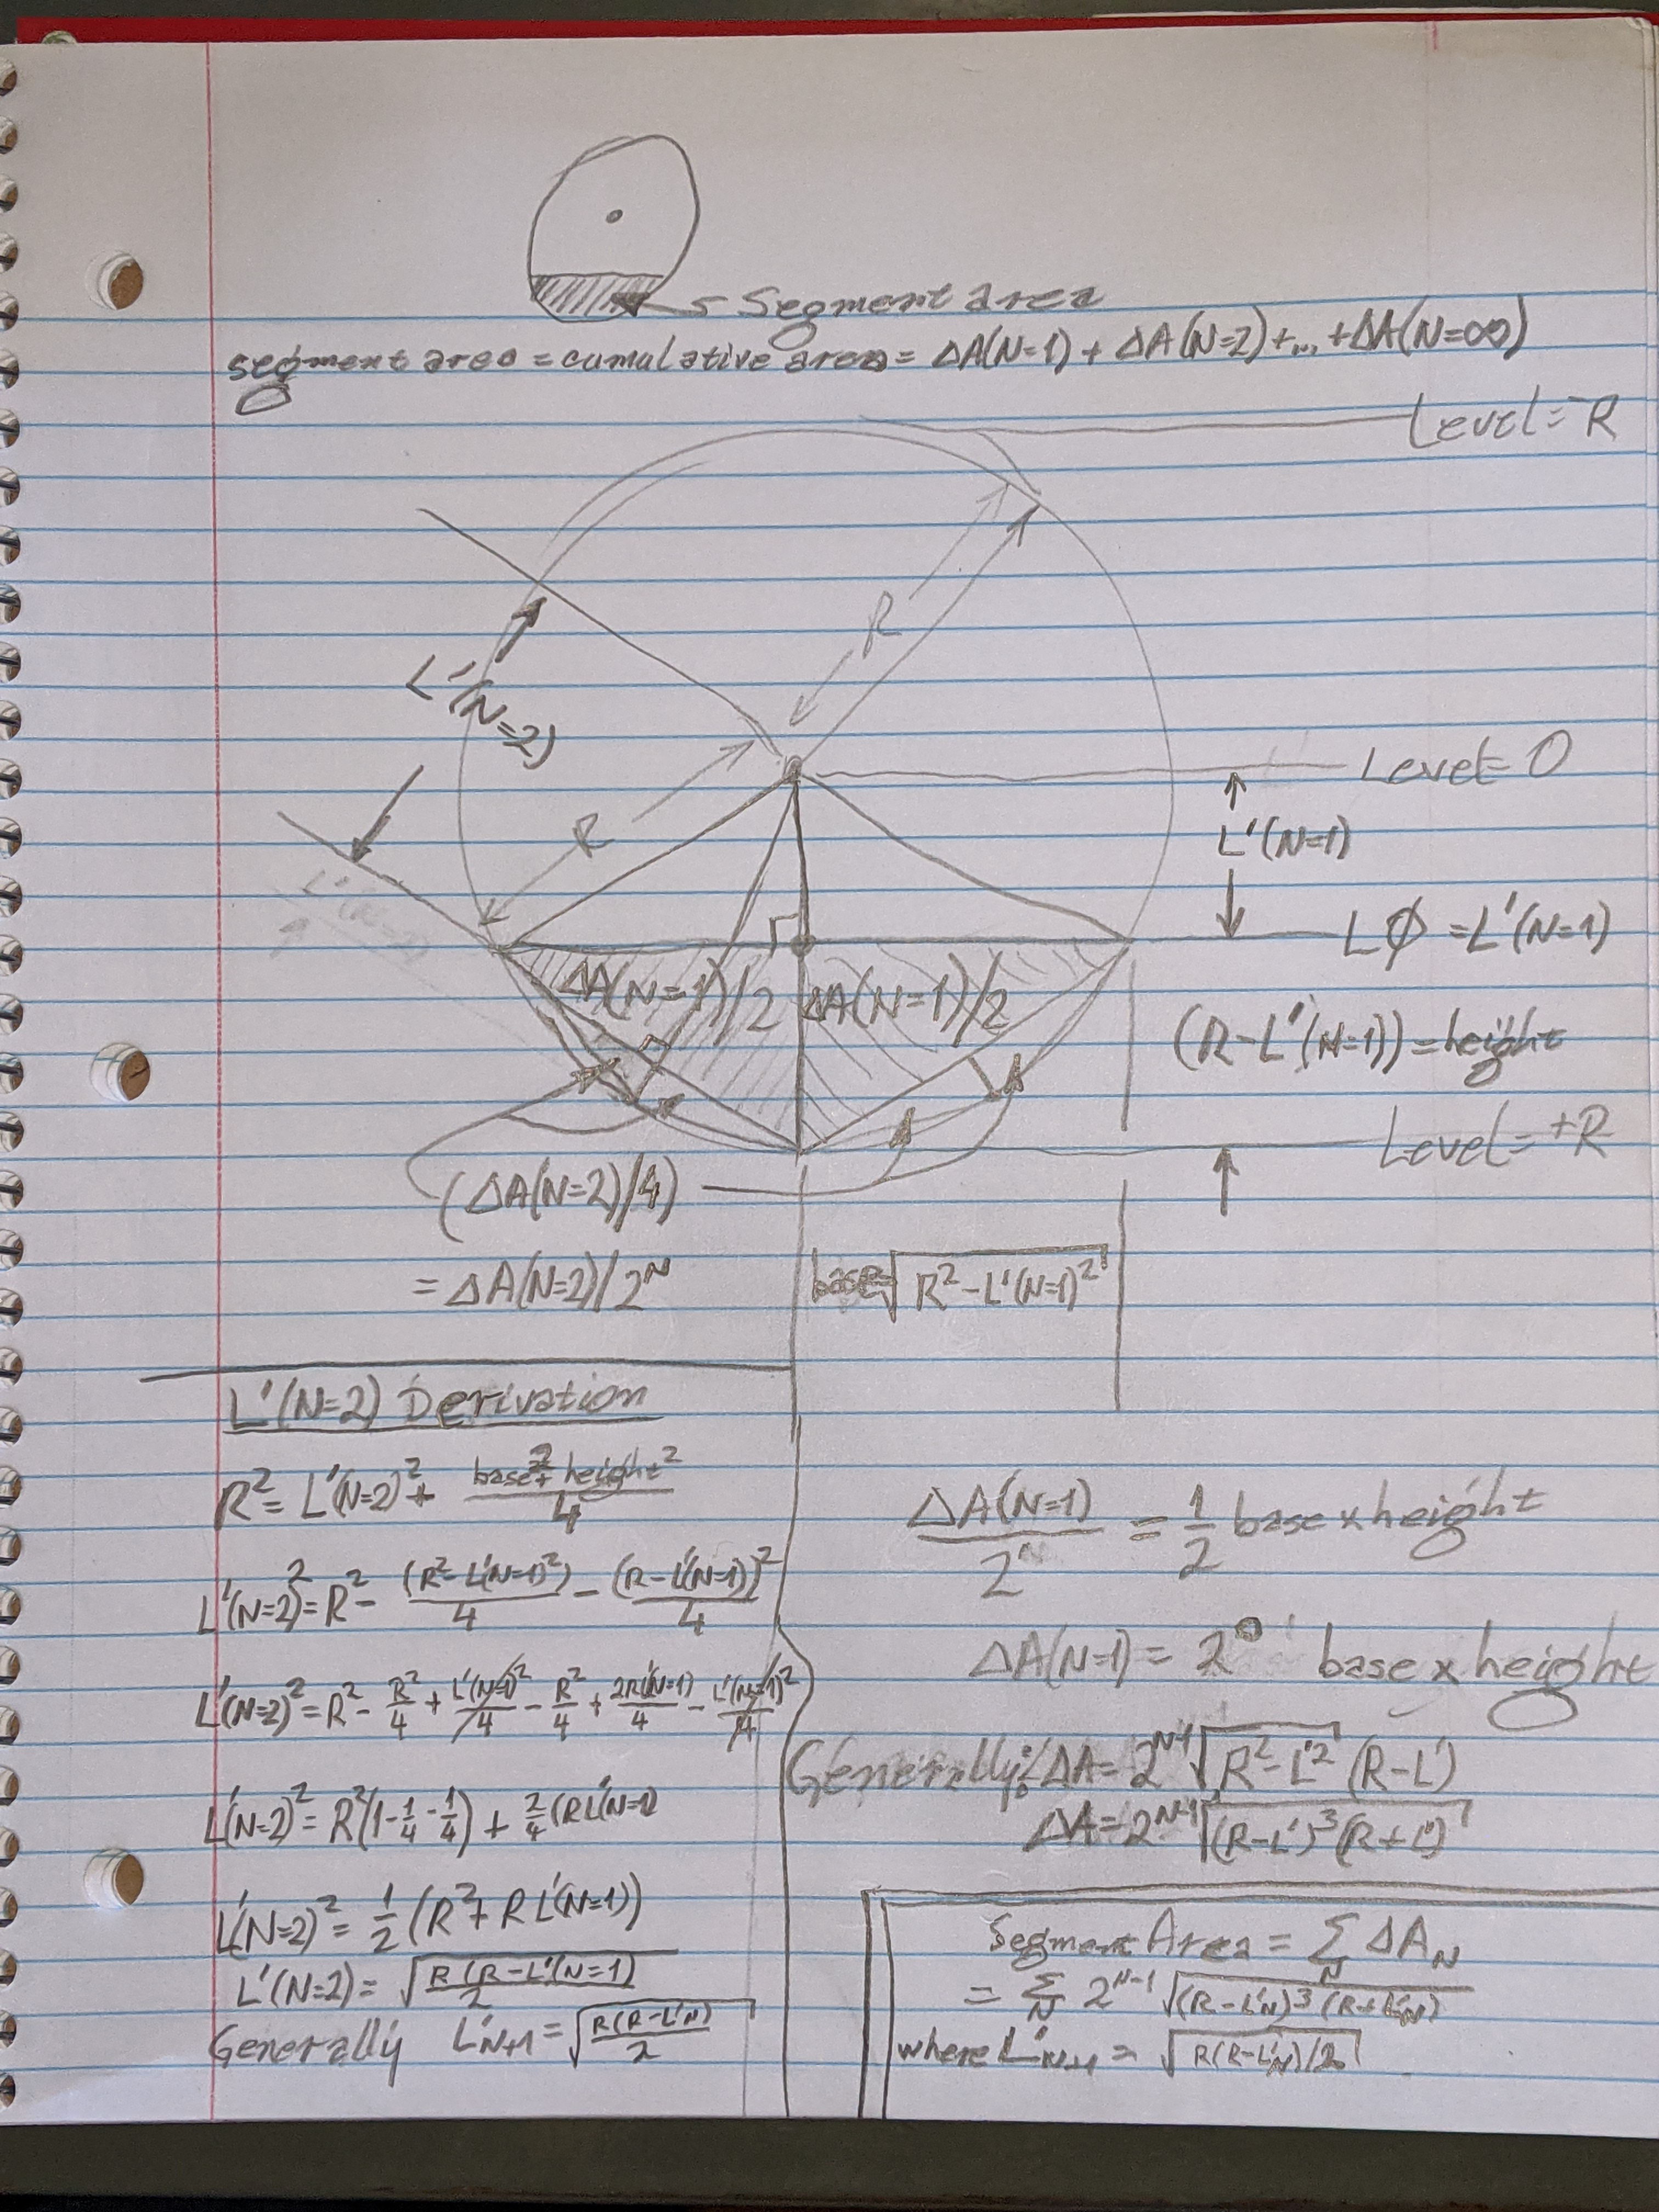 Segment area
segment area = cumulative area = ΔA(N=1) + ΔA(N=2) + ... + ΔA(N=∞)
Level = -R
R
L'(N=2)
Level = 0
R
L'(N=1)
LØ = L'(N=1)
ΔA(N=1)/2 ΔA(N=1)/2
(R-L'(N=1)) = height
Level = +R
(ΔA(N=2)/4)
= ΔA(N=2)/2^N
base = √(R² - L'(N=1)²)
L'(N=2) Derivation
R² = L'(N=2)² + (base² + height²)/4
L'(N=2)² = R² - (R² - L'(N=1)²)/4 - (R - L'(N=1))²/4
L'(N=2)² = R² - R²/4 + L'(N=1)²/4 - R²/4 + 2RL'(N=1)/4 - L'(N=1)²/4
L'(N=2)² = R²(1 - 1/4 - 1/4) + 2/4 (RL'(N=1)
L'(N=2)² = 1/2 (R² + RL'(N=1))
L'(N=2) = √(R(R-L'(N=1)/2)
Generally L'N+1 = √(R(R-L'N)/2)
ΔA(N=1)/2^N = 1/2 base x height
ΔA(N=1) = 2^0 base x height
Generally: ΔA = 2^(N-1) √(R² - L'²) (R-L')
ΔA = 2^(N-1) √((R-L')³ (R+L'))
Segment Area = Σ_N ΔA_N
= Σ_N 2^(N-1) √((R-L'N)³ (R+L'N))
where L'N+1 = √(R(R-L'N)/2)